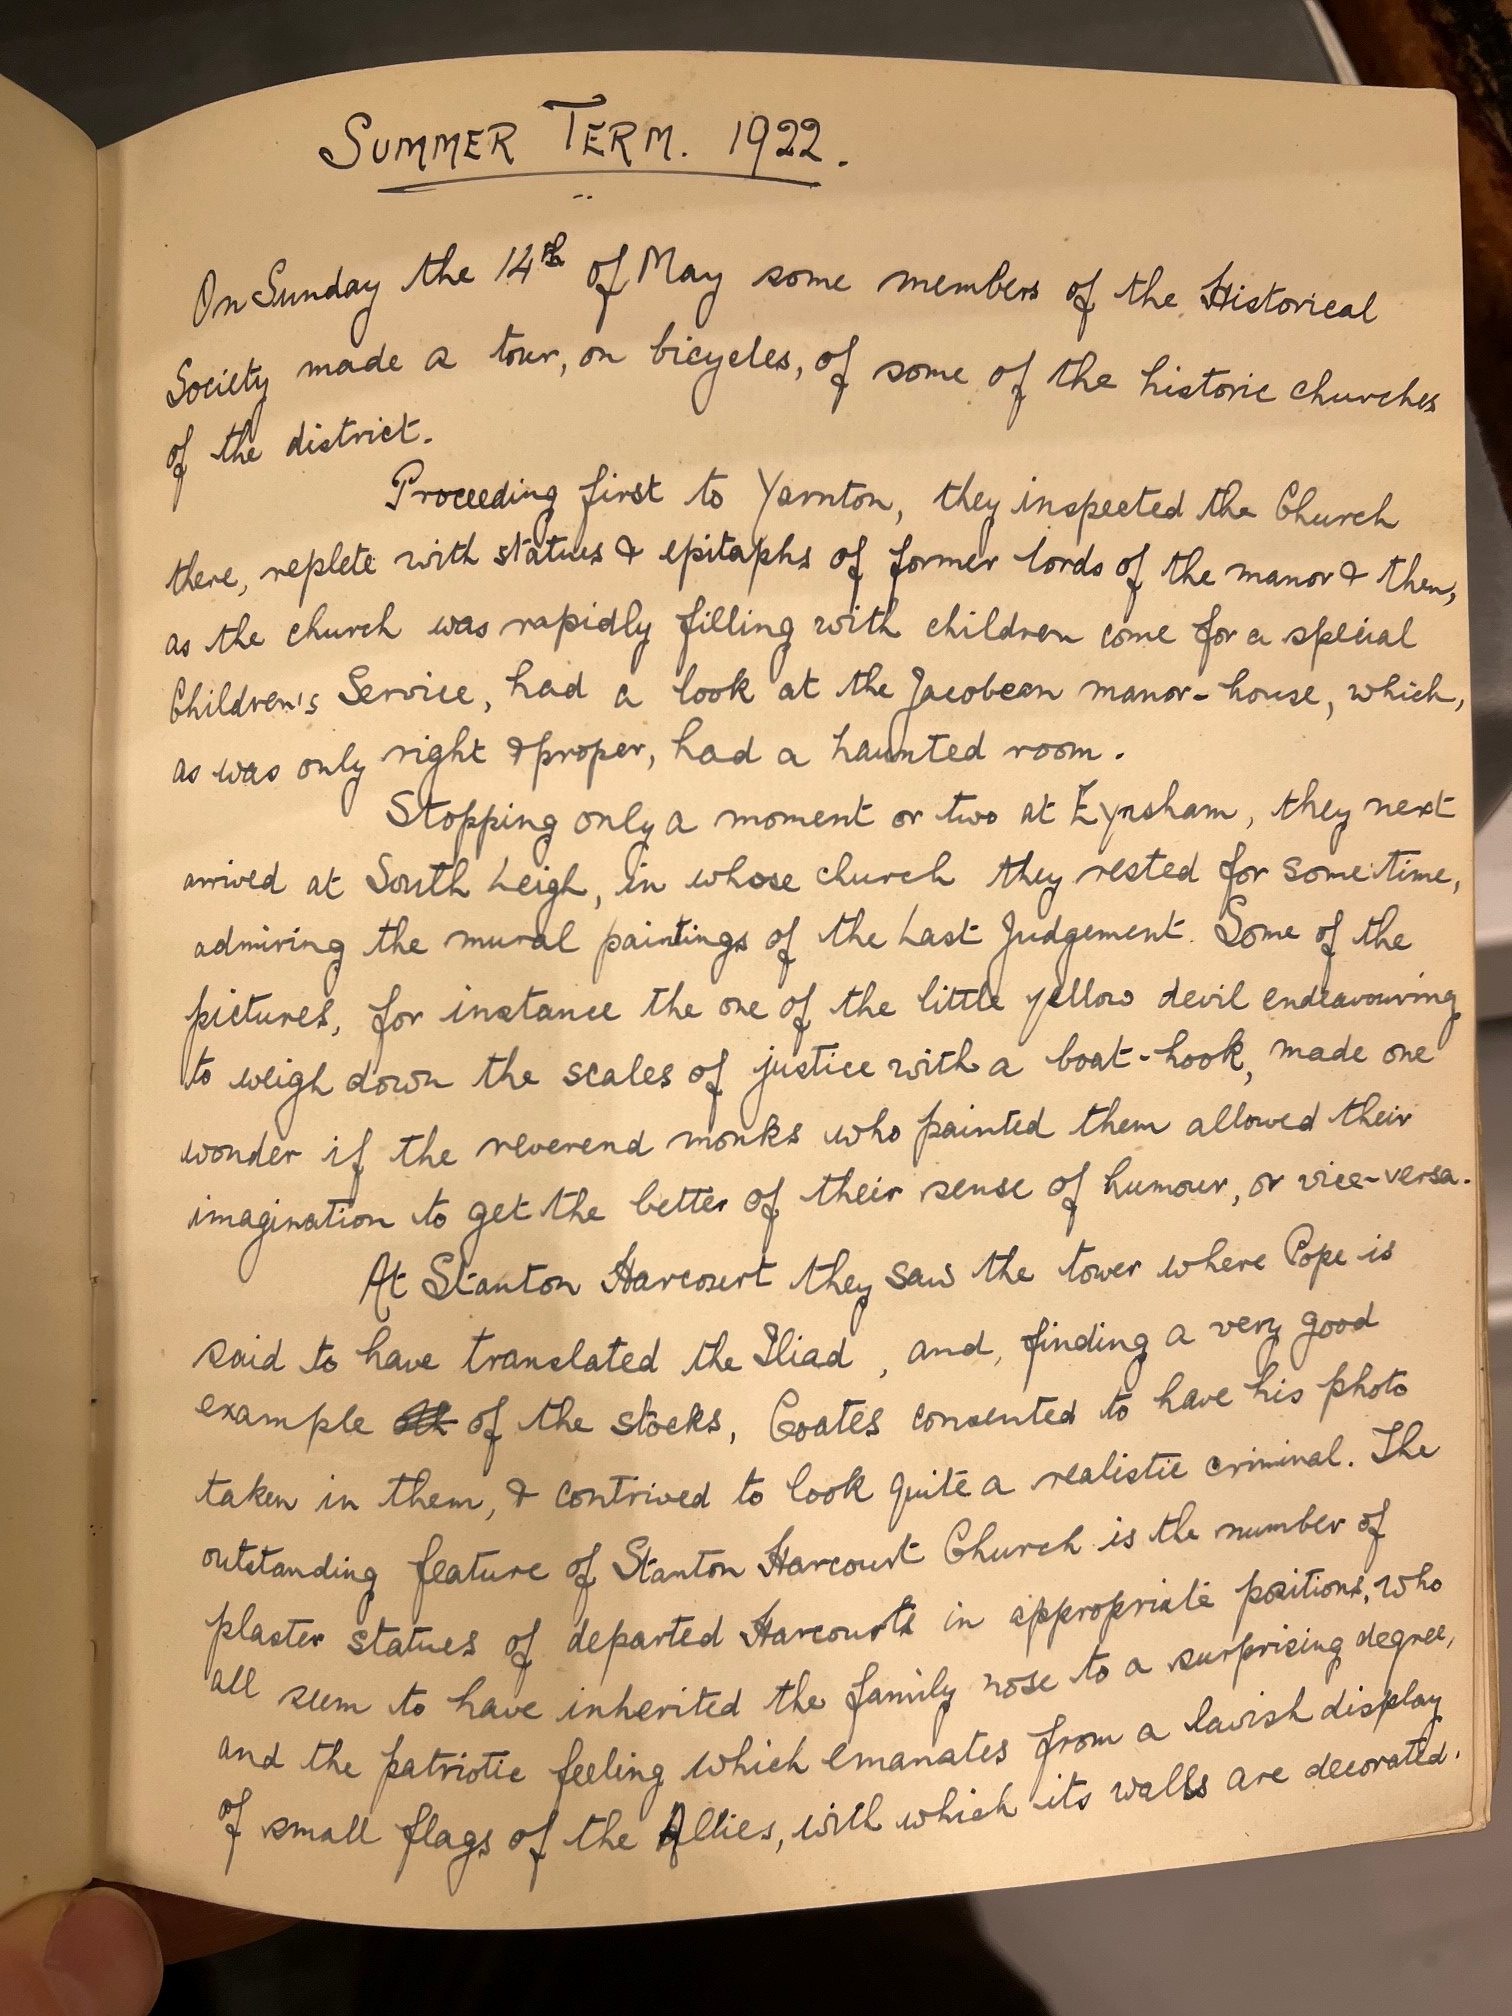 SUMMER TERM. 1922.
On Sunday the 14th of May some members of the Historical
Society made a tour, on bicycles, of some of the historic churches
of the district.
Proceeding first to Yarnton, they inspected the Church
there, replete with statues & epitaphs of former lords of the manor & then,
as the church was rapidly filling with children come for a special
Children's Service, had a look at the Jacobean manor-house, which,
as was only right & proper, had a haunted room.
Stopping only a moment or two at Eynsham, they next
arrived at South Leigh, in whose church they rested for some time,
admiring the mural paintings of the Last Judgement. Some of the
pictures, for instance the one of the little yellow devil endeavouring
to weigh down the scales of justice with a boat-hook, made one
wonder if the reverend monks who painted them allowed their
imagination to get the better of their sense of humour, or vice-versa.
At Stanton Harcourt they saw the tower where Pope is
said to have translated the Iliad, and, finding a very good
example of the stocks, Coates consented to have his photo
taken in them, & contrived to look quite a realistic criminal. The
outstanding feature of Stanton Harcourt Church is the number of
plaster statues of departed Harcourts in appropriate positions, who
all seem to have inherited the family nose to a surprising degree,
and the patriotic feeling which emanates from a lavish display
of small flags of the Allies, with which its walls are decorated.